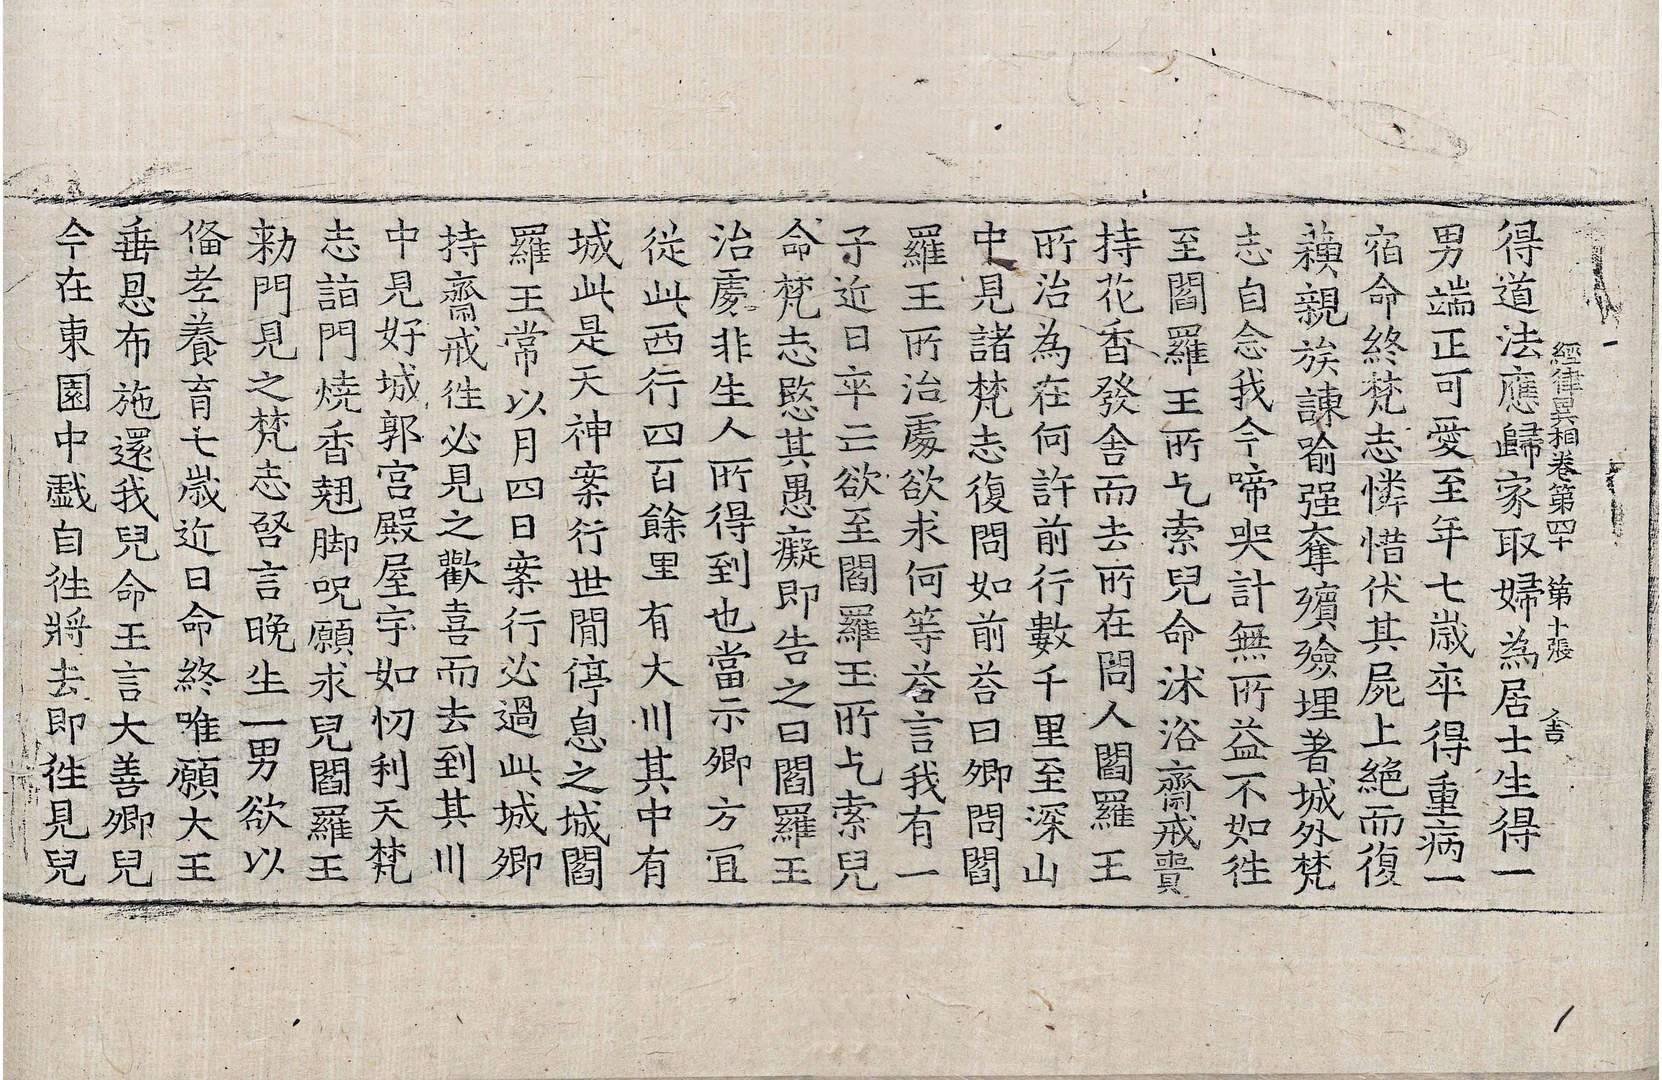 經律異相卷第四十 第十張 舍
得道法應歸家取婦為居士生得一
男端正可愛至年七歲卒得重病一
宿命終梵志憐惜伏其屍上絶而復
蘇親族諫喻强奪殯殮埋著城外梵
志自念我今啼哭計無所益不如徃
至閻羅王所乞索兒命沐浴齋戒賷
持花香發舍而去所在問人閻羅王
所治為在何許前行數千里至深山
中見諸梵志復問如前荅曰卿問閻
羅王所治處欲求何等荅言我有一
子近日卒亡欲至閻羅王所乞索兒
命梵志愍其愚癡即告之曰閻羅王
治處非生人所得到也當示卿方冝
從此西行四百餘里有大川其中有
城此是天神案行世閒停息之城閻
羅王常以月四日案行必過此城卿
持齋戒徃必見之歡喜而去到其川
中見好城郭宮殿屋宇如忉利天梵
志詣門燒香翹脚呪願求見閻羅王
勑門見之梵志啓言晚生一男欲以
俻孝養育七歲近日命終唯願大王
垂恩布施還我兒命王言大善卿兒
今在東園中戲自徃將去即徃見兒